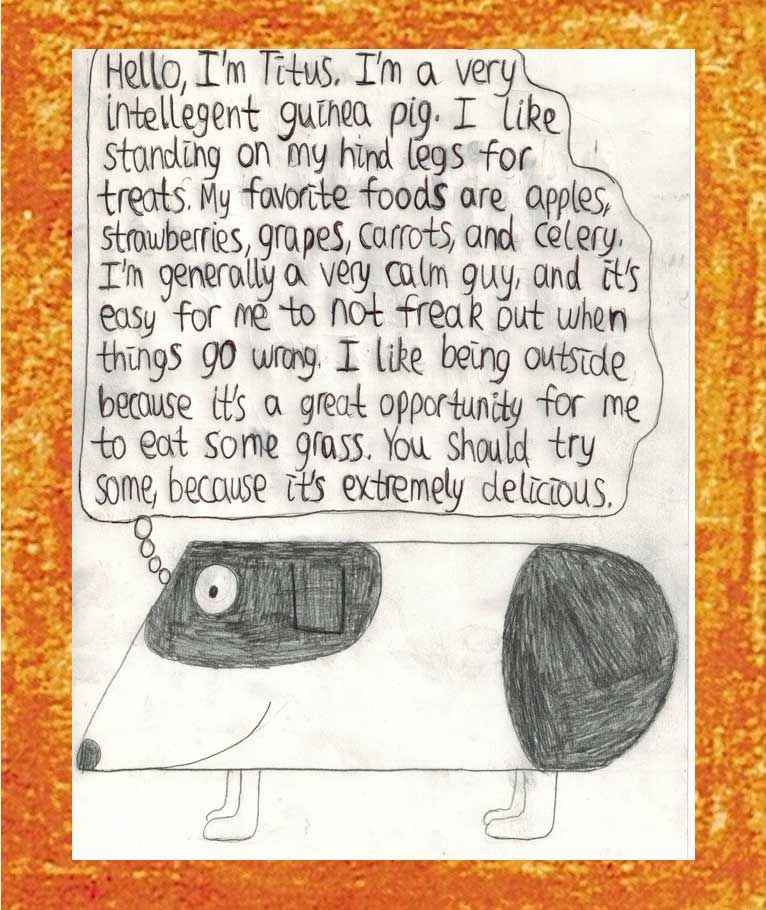 Hello, I'm Titus. I'm a very
intellegent guinea pig. I like
standing on my hind legs for
treats. My favorite foods are apples,
strawberries, grapes, carrots, and celery.
I'm generally a very calm guy, and it's
easy for me to not freak out when
things go wrong. I like being outside
because it's a great opportunity for me
to eat some grass. You should try
some, because it's extremely delicious.